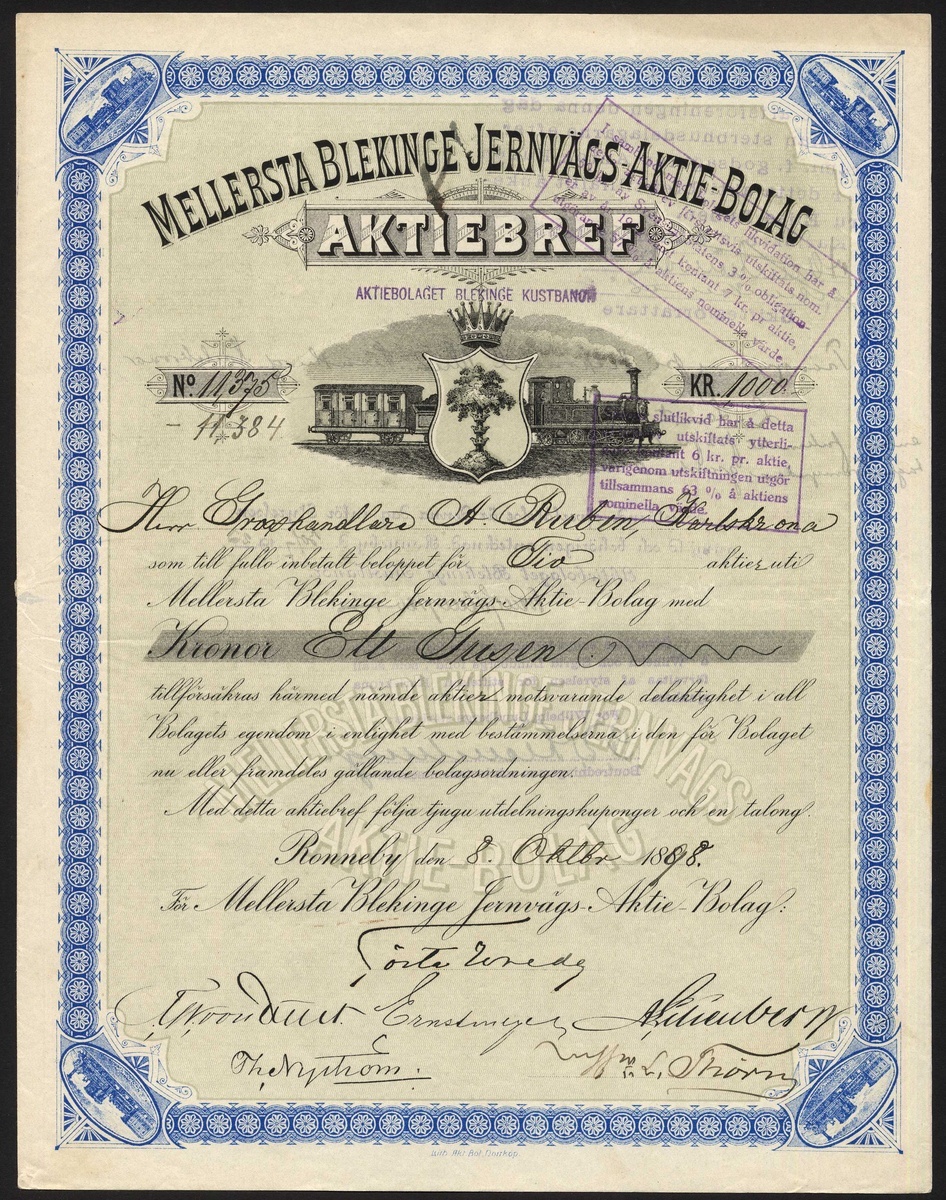 MELLERSTA BLEKINGE JERNVÄGS-AKTIE-BOLAG
AKTIEBREF
AKTIEBOLAGET BLEKINGE KUSTBANOR
No. 11,375
- 11,384
KR. 1000
likvidation har å
utskiftats nom.
3 % obligation-
kontant 7 kr. pr. aktie,
aktiens nominella värde.
slutlikvid har å detta
utskiftats ytterli-
kontant 6 kr. pr. aktie,
varigenom utskiftningen utgör
tillsammans 63 % å aktiens
nominella värde.
Herr Grosshandlare A. Ruben, Karlskrona
som till fullo inbetalt beloppet för Tio aktier uti
Mellersta Blekinge Jernvägs-Aktie-Bolag med
Kronor Ett Tusen
tillförsäkras härmed nämde aktier motsvarande delaktighet i all
Bolagets egendom i enlighet med bestämmelserna i den för Bolaget
nu eller framdeles gällande bolagsordningen.
Med detta aktiebref följa tjugu utdelningskuponger och en talong.
MELLERSTA BLEKINGE JERNVÄGS
AKTIE-BOLAG
Ronneby den 8 Oktbr 1898.
För Mellersta Blekinge Jernvägs-Aktie-Bolag:
Gösta Wrede
Ernst Meyer
Th. Nyström.
Thörn
Lith. Akt. Bol. Norrköp.